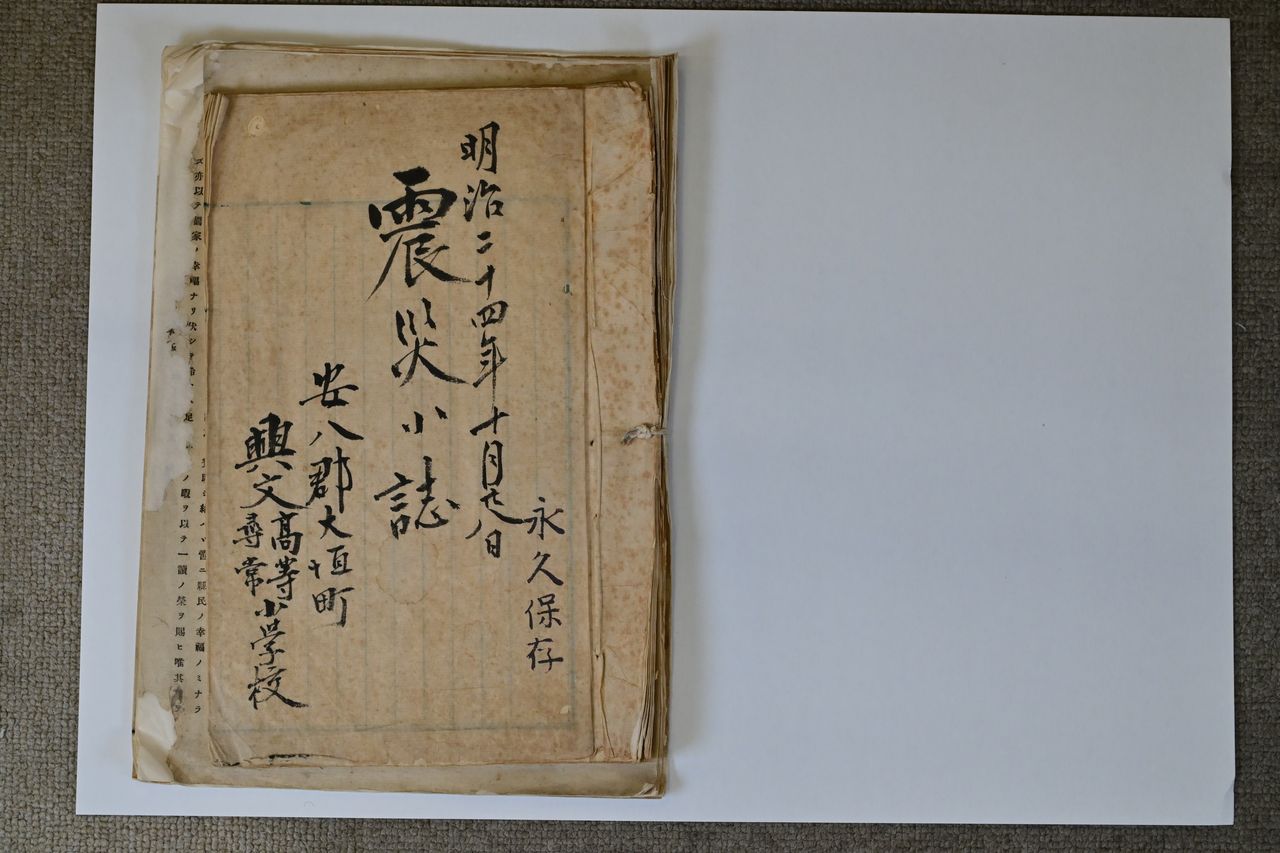 永久保存
明治二十四年十月廿八日
震災小誌
安八郡大垣町
興文高等尋常小学校
ズ亦以テ農家ノ幸福ナリ
啻ニ縣民ノ幸福ノミナラ
ノ暇ヲ以テ一讀ノ榮ヲ賜ヒ唯其